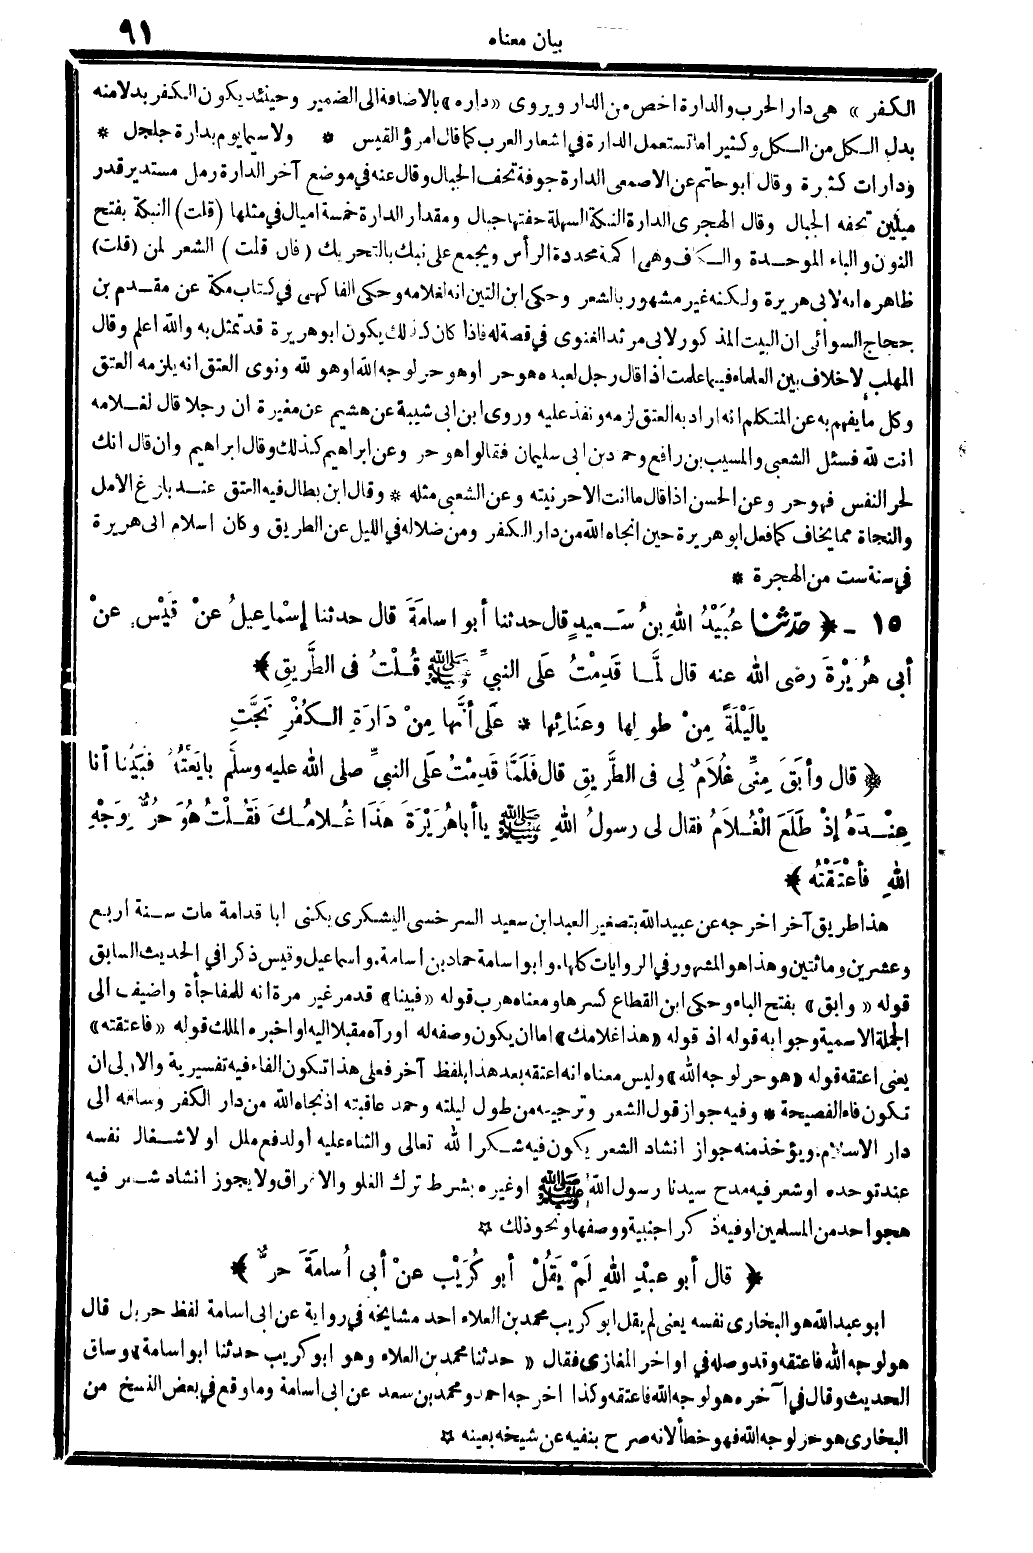 بيان معناه
٩١
الكفر» هى دار الحرب والدارة اخص من الدار ويروى «داره» بالاضافة الى الضمير وحينئذ يكون الكفر بدلا منه
بدل الكل من الكل وكثيرا ما تستعمل الدارة فى اشعار العرب كما قال امرؤ القيس * ولا سيما يوم بدارة جلجل *
ودارات كثيرة وقال ابو حاتم عن الاصمعى الدارة جوفة تحف الجبال وقال عنه فى موضع آخر الدارة رمل مستدير قدر
ميلين تحفه الجبال وقال الهجرى الدارة النبكة السهلة حفتها جبال ومقدار الدارة خمسة اميال فى مثلها (قلت) النبكة بفتح
النون والباء الموحدة والكاف وهى اكمة محددة الرأس ويجمع على نبك بالتحريك (فان قلت) الشعر لمن (قلت)
ظاهره انه لابى هريرة ولكنه غير مشهور بالشعر وحكى ابن التين انه لغلامه وحكى الفاكهى فى كتاب مكة عن مقدم بن
حجاج السوائى ان البيت المذكور لابى مرثد الغنوى فى قصة له فاذا كان كذلك يكون ابو هريرة قد تمثل به والله اعلم وقال
المهلب لا خلاف بين العلماء فيما علمت اذا قال رجل لعبده هو حر او هو حر لوجه الله او هو لله ونوى العتق انه يلزمه العتق
وكل ما يفهم به عن المتكلم انه اراد به العتق لزمه ونفذ عليه وروى ابن ابى شيبة عن هشيم عن مغيرة ان رجلا قال لغلامه
انت لله فسئل الشعبى والمسيب بن رافع وحماد بن ابى سليمان فقالوا هو حر وعن ابراهيم كذلك وقال ابراهيم وان قال انك
لحر النفس فهو حر وعن الحسن اذا قال ما انت الا حر نيته وعن الشعبى مثله * وقال ابن بطال فيه العتق عند بلوغ الامل
والنجاة مما يخاف كما فعل ابو هريرة حين انجاه الله من دار الكفر ومن ضلاله فى الليل عن الطريق وكان اسلام ابى هريرة
فى سنة ست من الهجرة *
١٥ - ﴿ حدثنا عُبَيْدُ اللهِ بنُ سَعيدٍ قال حدثنا أبو اسامَةَ قال حدثنا إسْماعِيلُ عنْ قَيْسٍ عنْ
أبى هُرَيْرةَ رضى الله عنه قال لَمَّا قَدِمْتُ علَى النبىِّ ﷺ قُلْتُ فى الطَّريقِ ﴾
يالَيْلَةً مِنْ طولِها وعَنائِها * علَى أنَّها مِنْ دَارَةِ الكُفْرِ نَجَّتِ
﴿ قال وأبَقَ مِنِّى غُلاَمٌ لِى فى الطَّرِيقِ قال فَلَمَّا قَدِمْتُ علَى النبىِّ صلى الله عليه وسلَّم بايَعْتُهُ فَبَيْنا أنا
عِنْدَهُ إذْ طَلَعَ الْغُلاَمُ فقال لى رسولُ اللهِ ﷺ يا أبا هُرَيْرَةَ هَذَا غُلامُكَ فَقُلْتُ هُوَ حُرٌّ لِوَجْهِ
اللهِ فأعْتَقْتُه ﴾
هذا طريق آخر اخرجه عن عبيد الله بتصغير العبد ابن سعيد السرخسى اليشكرى يكنى ابا قدامة مات سنة اربع
وعشرين ومائتين وهذا هو المشهور فى الروايات كلها وابو اسامة حماد بن اسامة واسماعيل وقيس ذكرا فى الحديث السابق
قوله «وابق» بفتح الباء وحكى ابن القطاع كسرها ومعناه هرب قوله «فبينا» قد مر غير مرة انه للمفاجأة واضيف الى
الجملة الاسمية وجوابه قوله اذ قوله «هذا غلامك» اما ان يكون وصفه له او رآه مقبلا اليه او اخبره الملك قوله «فاعتقته»
يعنى اعتقه قوله «هو حر لوجه الله» وليس معناه انه اعتقه بعد هذا بلفظ آخر فعلى هذا تكون الفاء فيه تفسيرية والاولى ان
تكون فاء الفصيحة * وفيه جواز قول الشعر وترجيه من طول ليلته وحمد عاقبته اذ نجاه الله من دار الكفر وساقه الى
دار الاسلام ويؤخذ منه جواز انشاد الشعر يكون فيه شكرا لله تعالى والثناء عليه او لدفع ملل او لاشغال نفسه
عند توحده او شعر فيه مدح سيدنا رسول الله ﷺ او غيره بشرط ترك الغلو والاغراق ولا يجوز انشاد شعر فيه
هجو احد من المسلمين او فيه ذكر اجنبية ووصفها ونحو ذلك ☆
﴿ قال أبو عبْدِ اللهِ لَمْ يَقُلْ أبو كُرَيْب عنْ أبى اُسامَةَ حرٌّ ﴾
ابو عبد الله هو البخارى نفسه يعنى لم يقل ابو كريب محمد بن العلاء احد مشايخه فى رواية عن ابى اسامة لفظ حر بل قال
هو لوجه الله فاعتقه وقد وصله فى اواخر المغازى فقال «حدثنا محمد بن العلاء وهو ابو كريب حدثنا ابو اسامة» وساق
الحديث وقال فى آخره هو لوجه الله فاعتقه وكذا اخرجه احمد ومحمد بن سعد عن ابى اسامة وما وقع فى بعض النسخ من
البخارى هو حر لوجه الله فهو خطأ لانه صرح بنفيه عن شيخه بعينه ☆